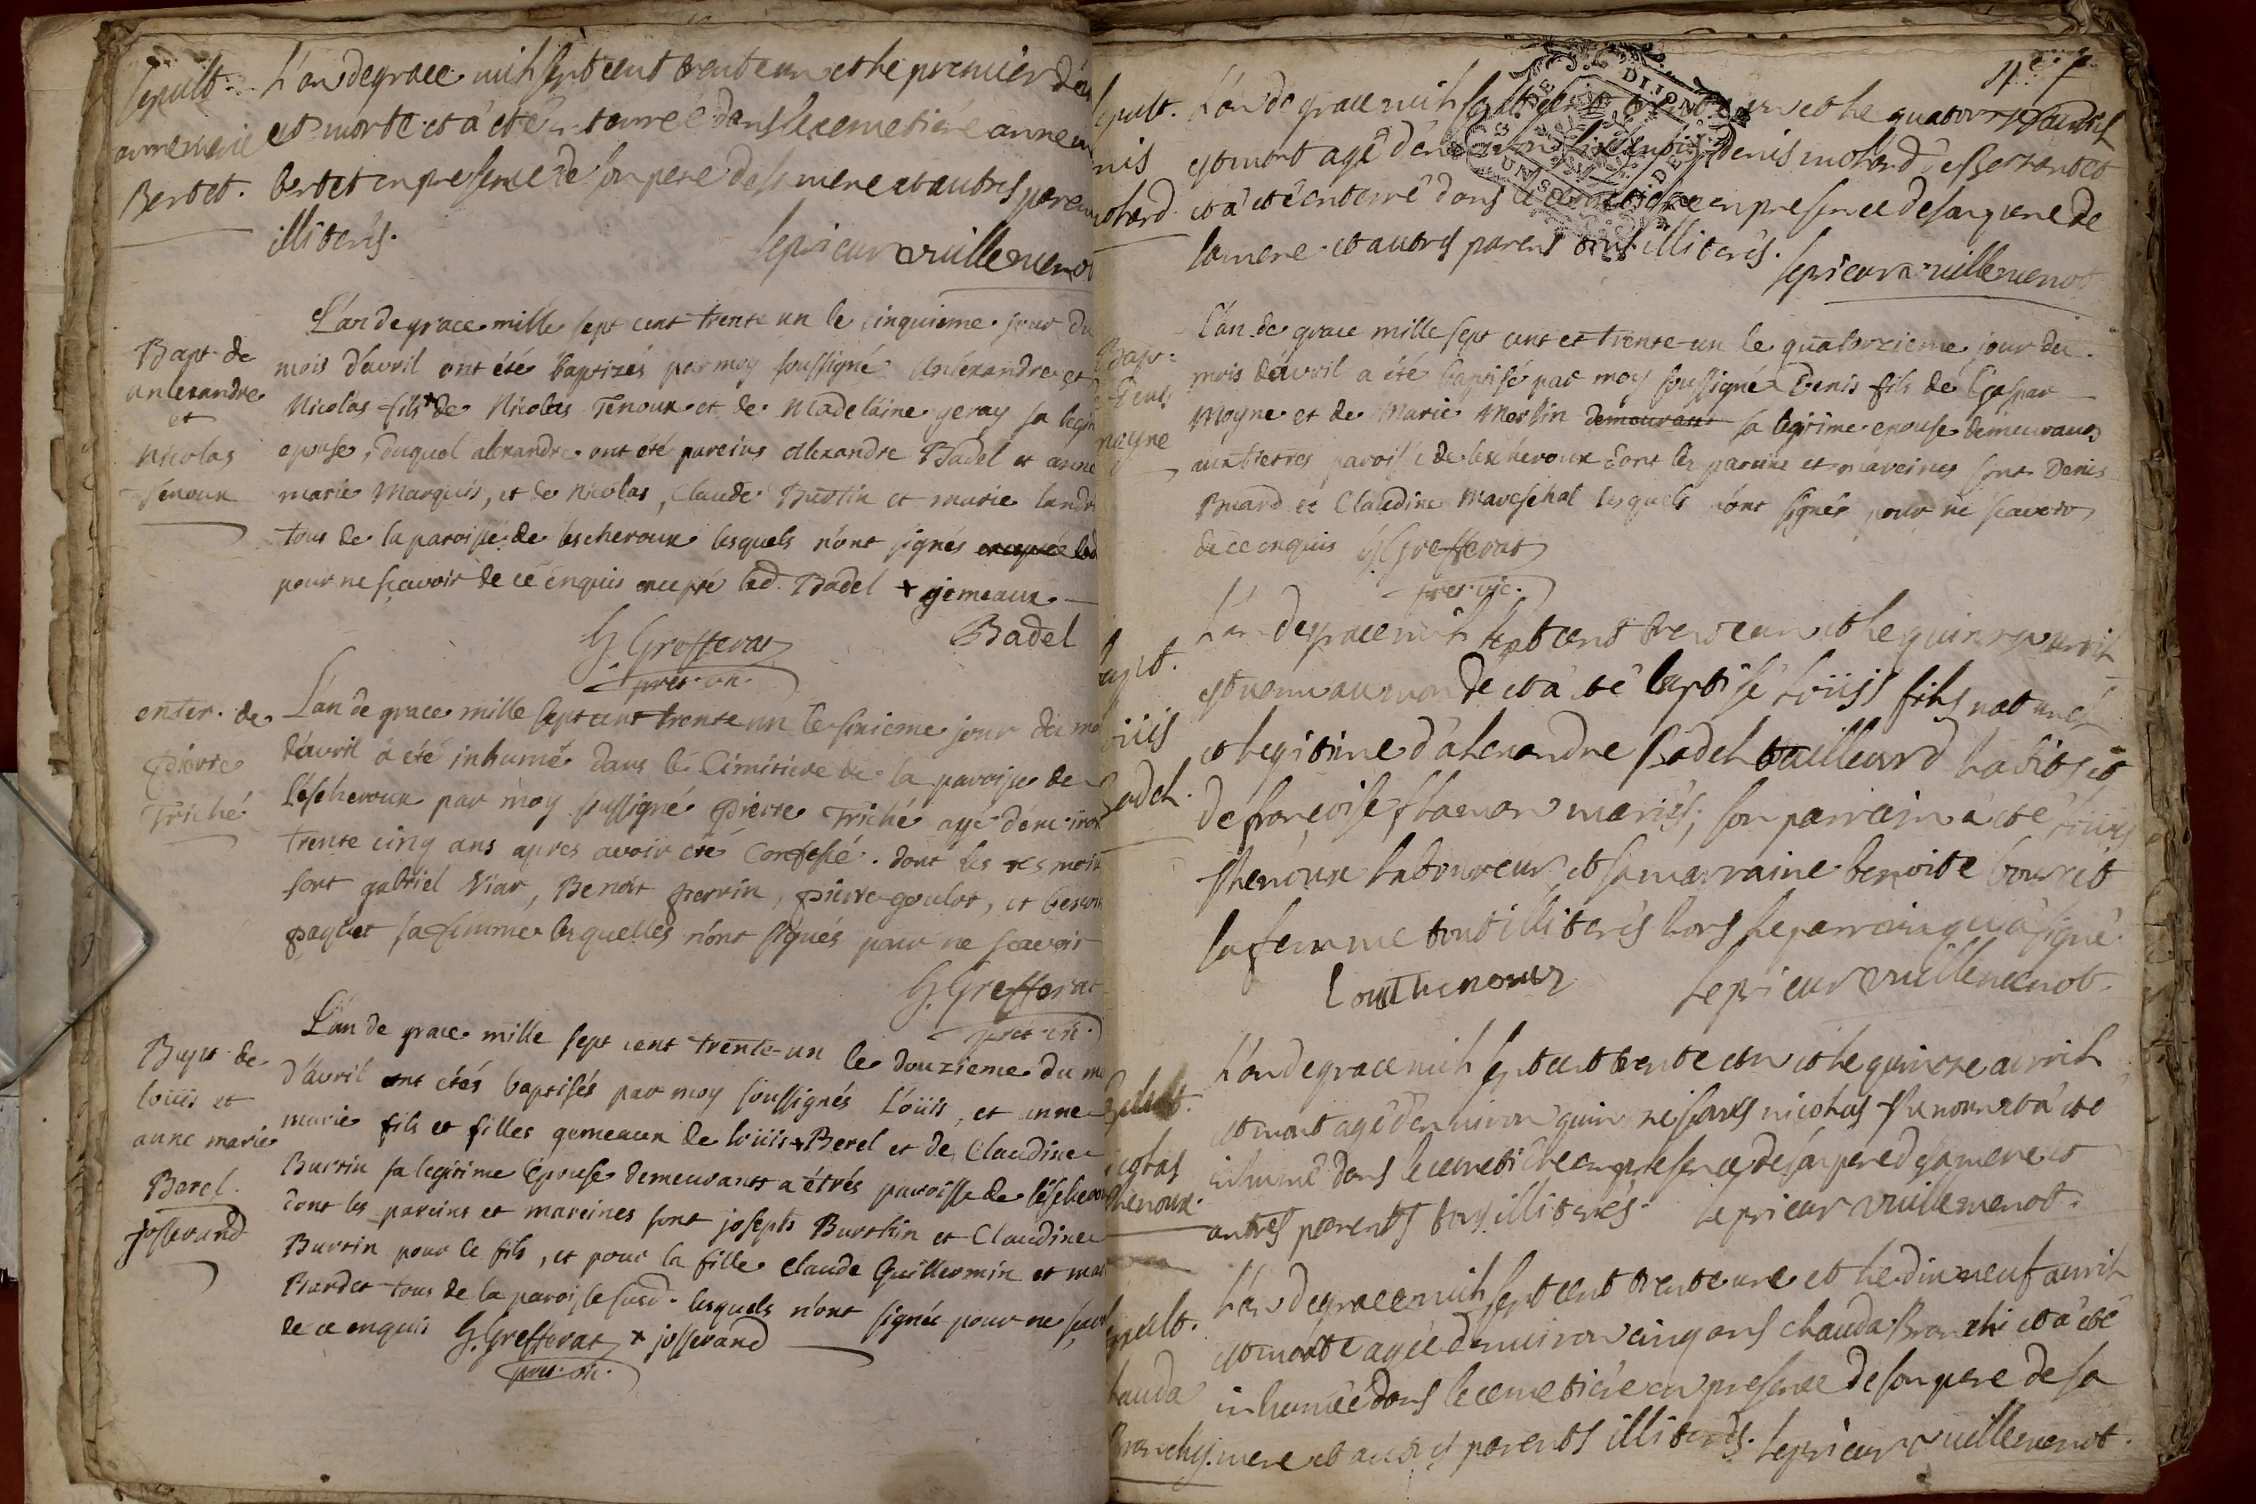 Sepult.
anne marie
Bertet.
L'an de grace mil sept cent trent eun et le premier d'a
est morte et a été enterreé dans le cemetiere anne m
bertet en presence de son pere de sa mere et autres paren
illiterés.
le prieur Vuillemenot
Bapt. de
anlexandre
et
Nicolas
Tenoux
L'an de grace mille sept cent trente un le cinquieme jour du
mois d'avril ont été baptizés par moy soussigné Anlexandre et
Nicolas fils + de Nicolas Tenoux et de Madelaine geray sa legit
epouse, duquel alexandre ont été pareins Alexandre Badel et anne
marie Marquis, et de Nicolas, Claude Burtin et marie landr
tous de la paroisse de lescheroux lesquels n'ont signés excepté led
pour ne sçavoir de ce enquis excepté led. Badel + gemeaux
Badel
G. Grefferat
pret. vic.
enter. de
Pierre
Triché
L'an de grace mille sept cent trente un le sixieme jour du mo
d'avril a été inhumé dans le Cimitiere de la paroisse de
Lescheroux par moy soussigné Pierre Triché agé d'environ
trente cinq ans apres avoir été Confessé. dont les tesmoin
sont gabriel Viar, Benoit perrin, pierre goulot, et benoit
paquet sa femme lesquelles n'ont signés pour ne scavoir
G. Grefferat
pret. vic.
Bapt. de
loüis et
anne marie
Berel
josserand
L'an de grace mille sept cent trente-un le douzieme du mo
d'avril ont étés baptisés par moy soussignés Loüis, et anne
marie fils et filles gemeaux de loüis + Berel et de Claudine
Burtin sa legitime Epouse demeurants a étrés paroisse de lescherou
dont les pareins et mareines sont joseph Burthin et Claudine
Burtin pour le fils, et pour la fille Claude Guillermin et mar
Bardet tous de la paroisse susd. lesquels n'ont signés pour ne scav
de ce enquis G. Grefferat + josserand
pret. vic.
DIJON
sepult.
nis
ohard
L'an de grace mil sept cent trent eun et le quatorze avril
est mort agé d'environ Denis mohard et
et a été enterré dans le cemetiere en presence de son pere de
sa mere et autres parens tous illiterés.
le prieur Vuillemenot
Bapt.
Denis
moyne
L'an de grace mille sept cent et trente-un le quatorzieme jour du
mois d'avril a été baptisé par moy soussigné Denis fils de Gaspar
Moyne et de Marie Merlin demeurant sa legitime epouse demeurants
aux tierres paroisse de lescheroux dont les pareins et mareines sont Denis
Buard et Claudine Mareschal lesquels n'ont signés pour ne scavoir
de ce enquis G. Grefferat
pret. vic.
bapt.
oüis
Badel.
L'an de grace mil sept cent trent eun et le quinze avril
est venu au monde et a été baptisé loüis fils naturel
et legitime d'alexandre Badel tailleurd habits et
de françoise thenon mariés; son parrain a été loüis
thenoux laboureur, et sa marraine benoite bourcet
sa femme tous illiterés hors le parrain qui a signé.
Louis Thenoux
le prieur Vuillemenot.
Sepult.
nicolas
thenoux.
L'an de grace mil sept cent trente eun et le quinze avril
est mort agé d'environ quinze jours nicolas thenoux et a été
inhumé dans le cemetiere en presence de son pere de sa mere et
autres parents tous illiterés. le prieur Vuillemenot.
sepult.
clauda
Branchy.
L'an de grace mil sept cent trent eune et le dixneuf avril
est morte agée d'environ cinq ans clauda Branchi et a été
inhumeé dans le cemetiere en presence de son pere de sa
mere et autres parents illiterés. le prieur Vuillemenot.